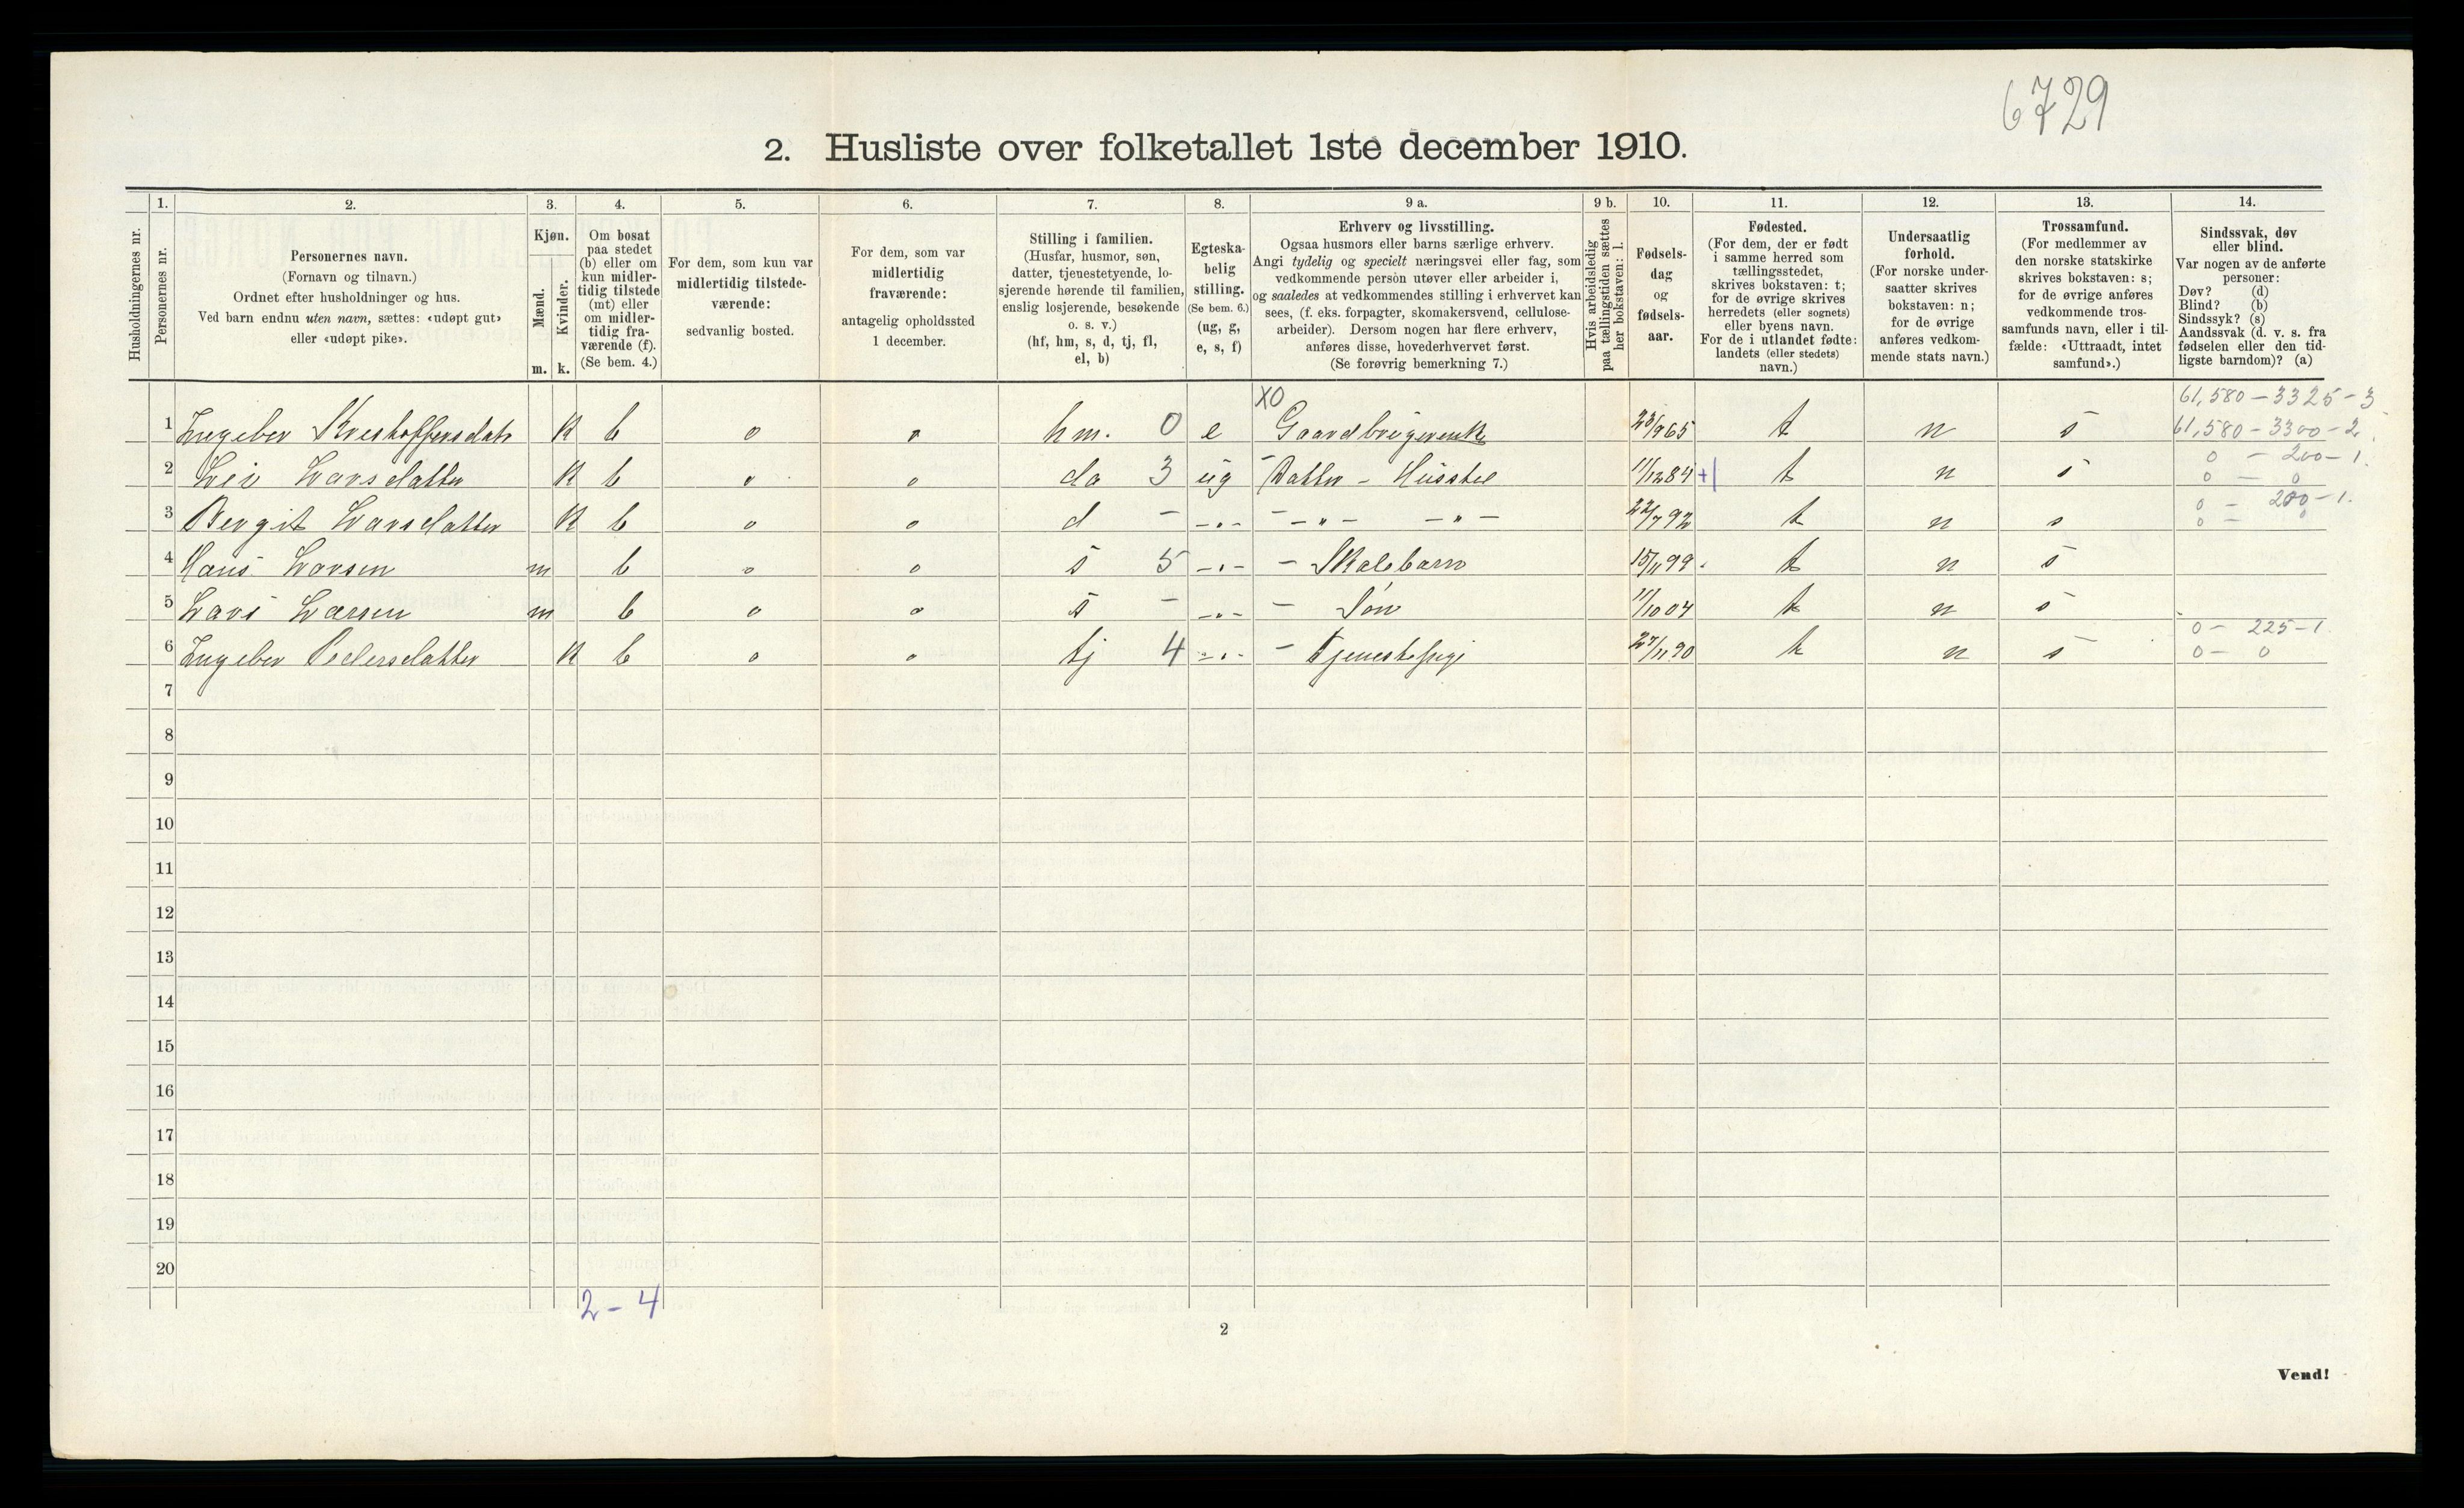 6729
2. Husliste over folketallet 1ste december 1910.
Husholdningernes nr.
1.
Personernes nr.
2.
Personernes navn.
(Fornavn og tilnavn.)
Ordnet efter husholdninger og hus.
Ved barn endnu uten navn, sættes: «udøpt gut»
eller «udøpt pike».
3.
Kjøn.
Mænd.
Kvinder.
m. k.
4.
Om bosat
paa stedet
(b) eller om
kun midler-
tidig tilstede
(mt) eller
om midler-
tidig fra-
værende (f).
(Se bem. 4.)
5.
For dem, som kun var
midlertidig tilstede-
værende:
sedvanlig bosted.
6.
For dem, som var
midlertidig
fraværende:
antagelig opholdssted
1 december.
7.
Stilling i familien.
(Husfar, husmor, søn,
datter, tjenestetyende, lo-
sjerende hørende til familien,
enslig losjerende, besøkende
o. s. v.)
(hf, hm, s, d, tj, fl,
el, b)
8.
Egteska-
belig
stilling.
(Se bem. 6.)
(ug, g,
e, s, f)
9 a.
Erhverv og livsstilling.
Ogsaa husmors eller barns særlige erhverv.
Angi tydelig og specielt næringsvei eller fag, som
vedkommende person utøver eller arbeider i,
og saaledes at vedkommendes stilling i erhvervet kan
sees, (f. eks. forpagter, skomakersvend, cellulose-
arbeider). Dersom nogen har flere erhverv,
anføres disse, hovederhvervet først.
(Se forøvrig bemerkning 7.)
9 b.
Hvis arbeidsledig
paa tællingstiden sættes
her bokstaven: l.
10.
Fødsels-
dag
og
fødsels-
aar.
11.
Fødested.
(For dem, der er født
i samme herred som
tællingsstedet,
skrives bokstaven: t;
for de øvrige skrives
herredets (eller sognets)
eller byens navn.
For de i utlandet fødte:
landets (eller stedets)
navn.)
12.
Undersaatlig
forhold.
(For norske under-
saatter skrives
bokstaven: n;
for de øvrige
anføres vedkom-
mende stats navn.)
13.
Trossamfund.
(For medlemmer av
den norske statskirke
skrives bokstaven: s;
for de øvrige anføres
vedkommende tros-
samfunds navn, eller i til-
fælde: «Uttraadt, intet
samfund».)
14.
Sindssvak, døv
eller blind.
Var nogen av de anførte
personer:
Døv? (d)
Blind? (b)
Sindssyk? (s)
Aandssvak (d. v. s. fra
fødselen eller den tid-
ligste barndom)? (a)
X0 61,580 - 3325 - 3
1 Ingebor K b o o hm. 0 e 23/9 65 t n s 61,580 - 3300 - 2
0 - 200 - 1.
2 Larsdatter K b o o da 3 ug Datter - Husstel 11/12 84 + t n s 0 - 0
0 - 200 - 1.
3 Bergit Larsdatter K b o o d - -„- -„- -„- 22/7 92 t n s 0 - 0
4 Hans Larsen m b o o s 5 -„- - Skolebarn 15/11 99 t n s
5 Lars Larsen m b o o s - -„- - Søn 11/10 04 t n s
0 - 225 - 1.
6 Ingebor Pedersdatter K b o o tj 4 -„- - Tjenestepige 27/11 90 t n s 0 - 0
7
8
9
10
11
12
13
14
15
16
17
18
19
20
2 - 4
2
Vend!